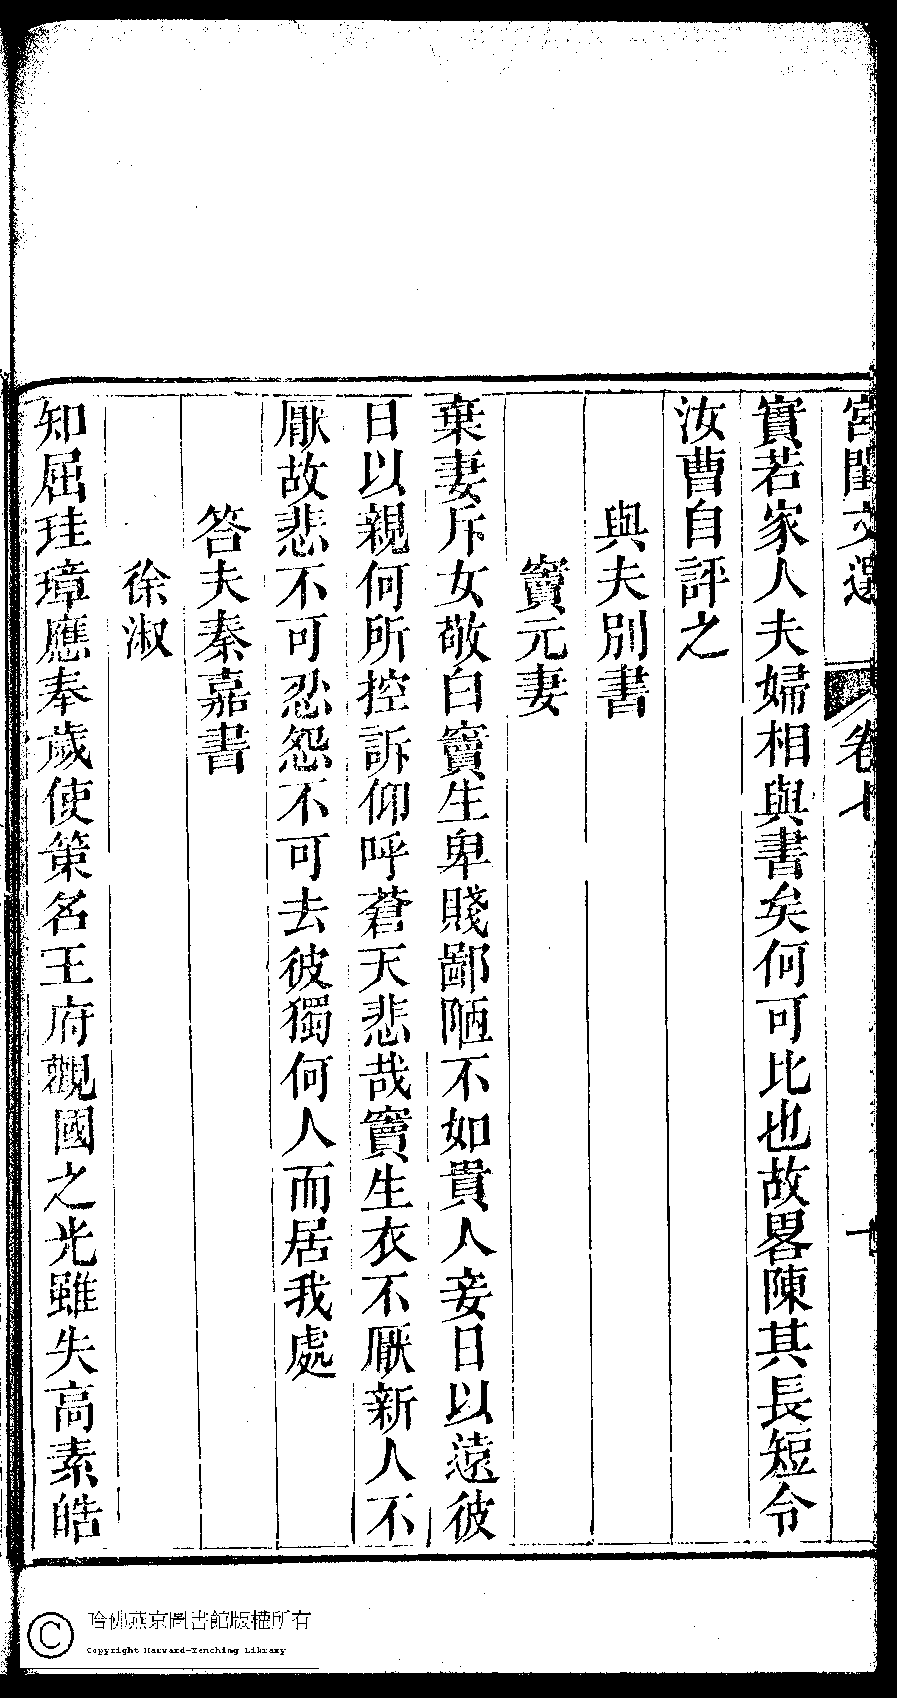 宮閨文選 卷七 十
實若家人夫婦相與書矣何可比也故畧陳其長短令
汝曹自評之
與夫別書
竇元妻
棄妻斥女敬白竇生卑賤鄙陋不如貴人妾日以遠彼
日以親何所控訴仰呼蒼天悲哉竇生衣不厭新人不
厭故悲不可忍怨不可去彼獨何人而居我處
答夫秦嘉書
徐淑
知屈珪璋應奉歲使策名王府觀國之光雖失高素皓
哈佛燕京圖書館版權所有
Copyright Harvard-Yenching Library